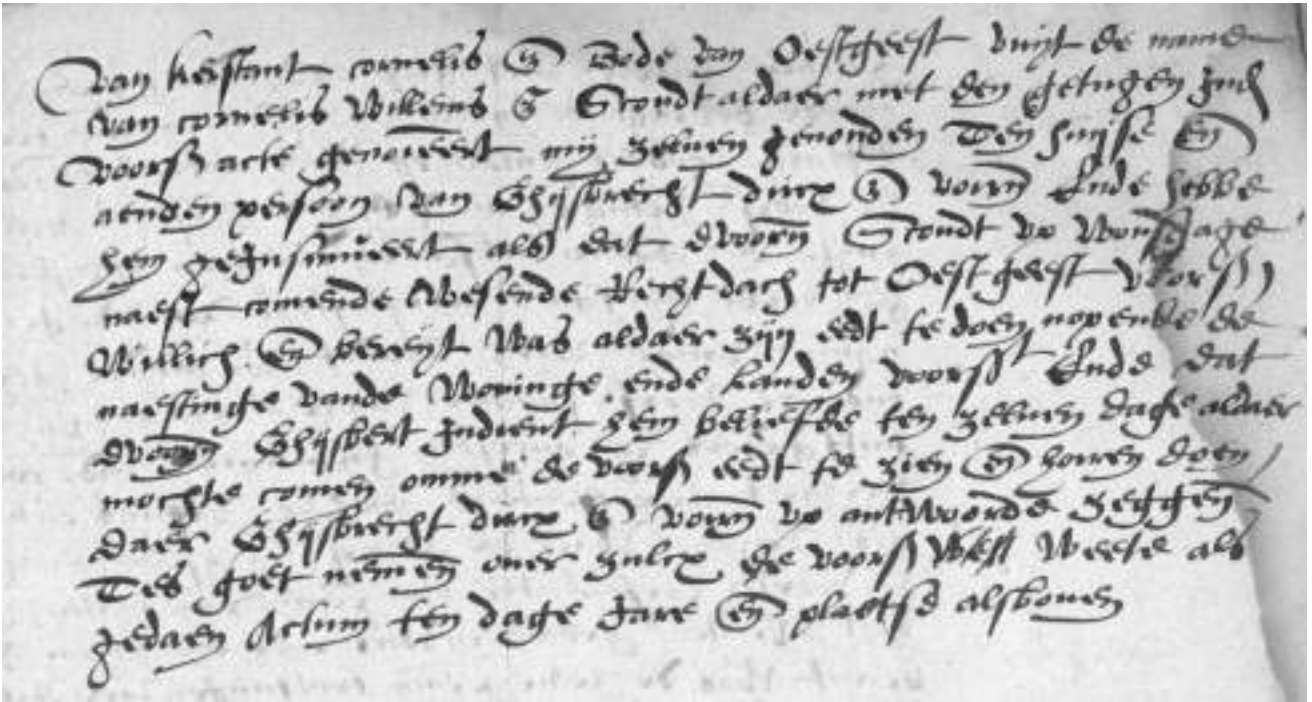 van kerstant cornelis z bode van Oestgeest vuyt de name
van cornelis willems z Scoudt aldaer met den getugen Ind
voors acte genomeert my zeluen geuonden ten huyse en
aenden persoon van Ghijsbrecht dircx z vourn Ende hebbe
hem geinsinueert als dat dvoorn Scoudt vp
naest comende wesende Rechtdach tot Oestgeest voors
willich en bereyt was aldaer zijn eedt te doen nopende de
naestinge vande woninge ende landen voors Ende dat
dvoorn Ghijsbert Indient hem beliefde ten zeluen dage aldaer
mochte comen omme de voors eedt te zien en horen doen
daer Ghijsbrecht dircx z vourn vp antwoorde zeggen
Tes goet nemen ouer zulcx de voors weete als
gedaen Actum ten dage Jare en plaetse alsbouen